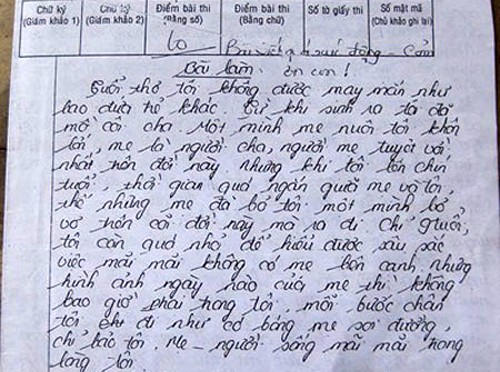 Chữ ký (Giám khảo 1) Chữ ký (Giám khảo 2) Điểm bài thi (Bằng số) Điểm bài thi (Bằng chữ) Số tờ giấy thi Số mật mã (Chủ khảo ghi lại)
10 Bài viết quá xúc động - Cảm
Bài làm. ơn con!
Tuổi thơ tôi không được may mắn như
bao đứa trẻ khác. Từ khi sinh ra tôi đã
mồ côi cha. Một mình mẹ nuôi tôi khôn
lớn, mẹ là người cha, người mẹ tuyệt vời
nhất trên đời này. Nhưng khi tôi lên chín
tuổi, thời gian quá ngắn gười mẹ và tôi,
thế nhưng mẹ đã bỏ tôi một mình bơ
vơ trên cõi đời này mà ra đi. Chỉ 9 tuổi,
tôi còn quá nhỏ để hiểu được sâu sắc
việc mãi mãi không có mẹ bên cạnh. nhưng
hình ảnh ngày nào của mẹ thì không
bao giờ phai trong tôi, mỗi bước chân
tôi đi như có bóng mẹ soi đường,
chỉ bảo tôi. Mẹ - người sống mãi mãi trong
lòng tôi.